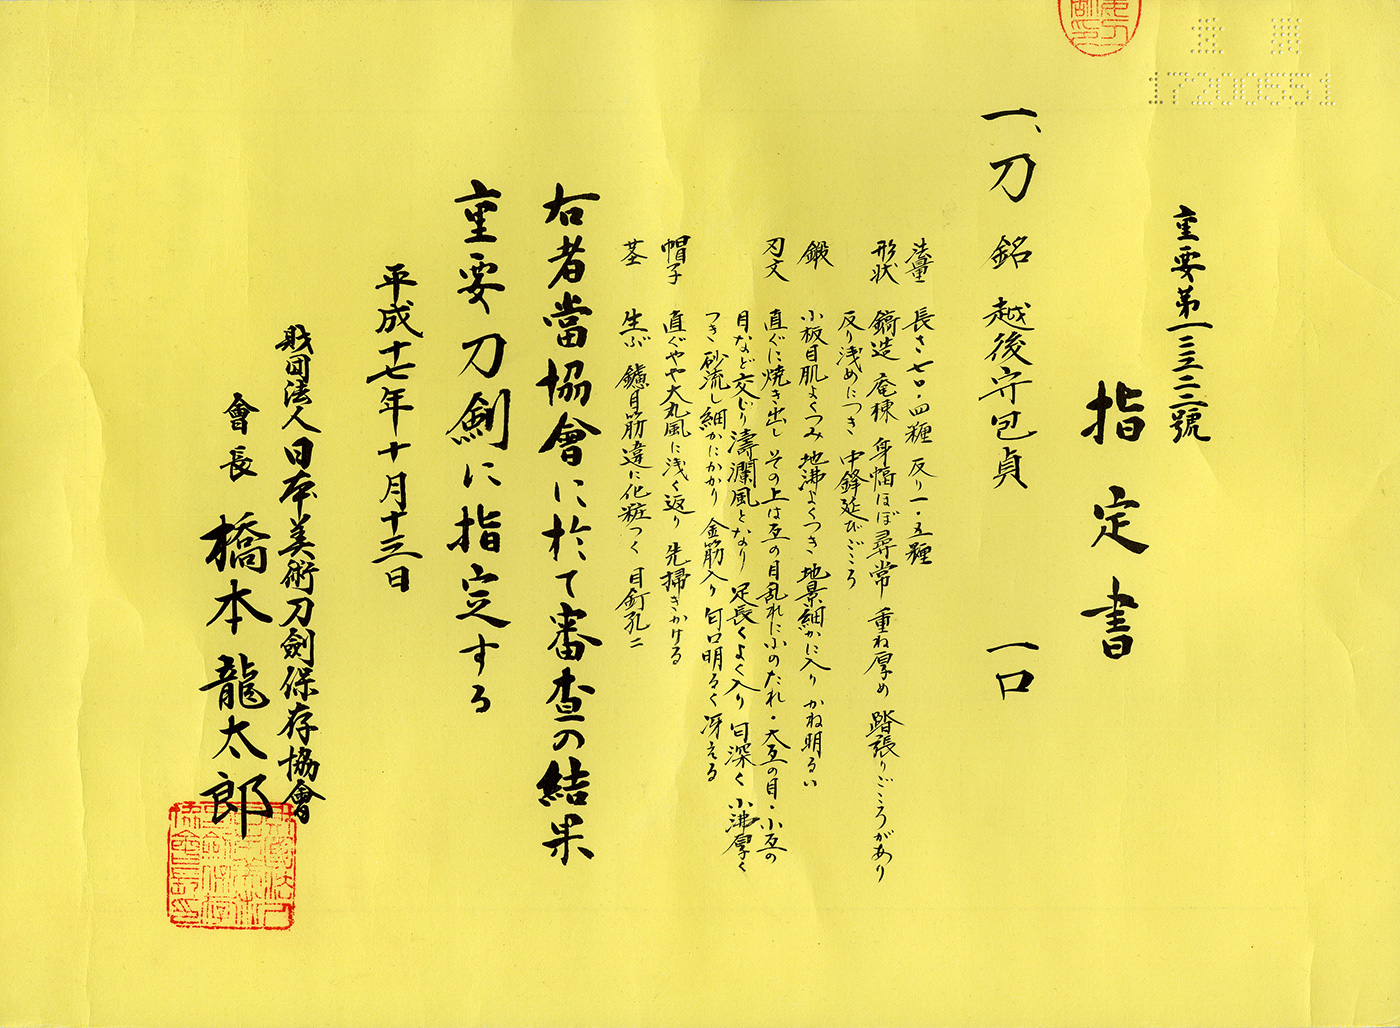 17200551
重要第一三三二二號
指定書
一、刀 銘 越後守包貞 一口
法量 長さ七〇・四糎 反り一・五糎
形状 鎬造 庵棟 身幅ほぼ尋常 重ね厚め 踏張りごころがあり
反り浅めにつき 中鋒延びごころ
鍛 小板目肌よくつみ 地沸よくつき 地景細かに入り かね明るい
刃文 直ぐに焼き出し その上は互の目乱れに小のたれ・大互の目・小互の
目など交じり 濤瀾風となり 足長くよく入り 匂深く 小沸厚く
つき 砂流し細かにかかり 金筋入り 匂口明るく冴える
帽子 直ぐやや大丸風に浅く返り 先掃きかける
茎 生ぶ 鑢目筋違に化粧つく 目釘孔二
右者當協會に於て審査の結果
重要刀劍に指定する
平成十七年十月十三日
財団法人日本美術刀劍保存協會
會長 橋本龍太郎